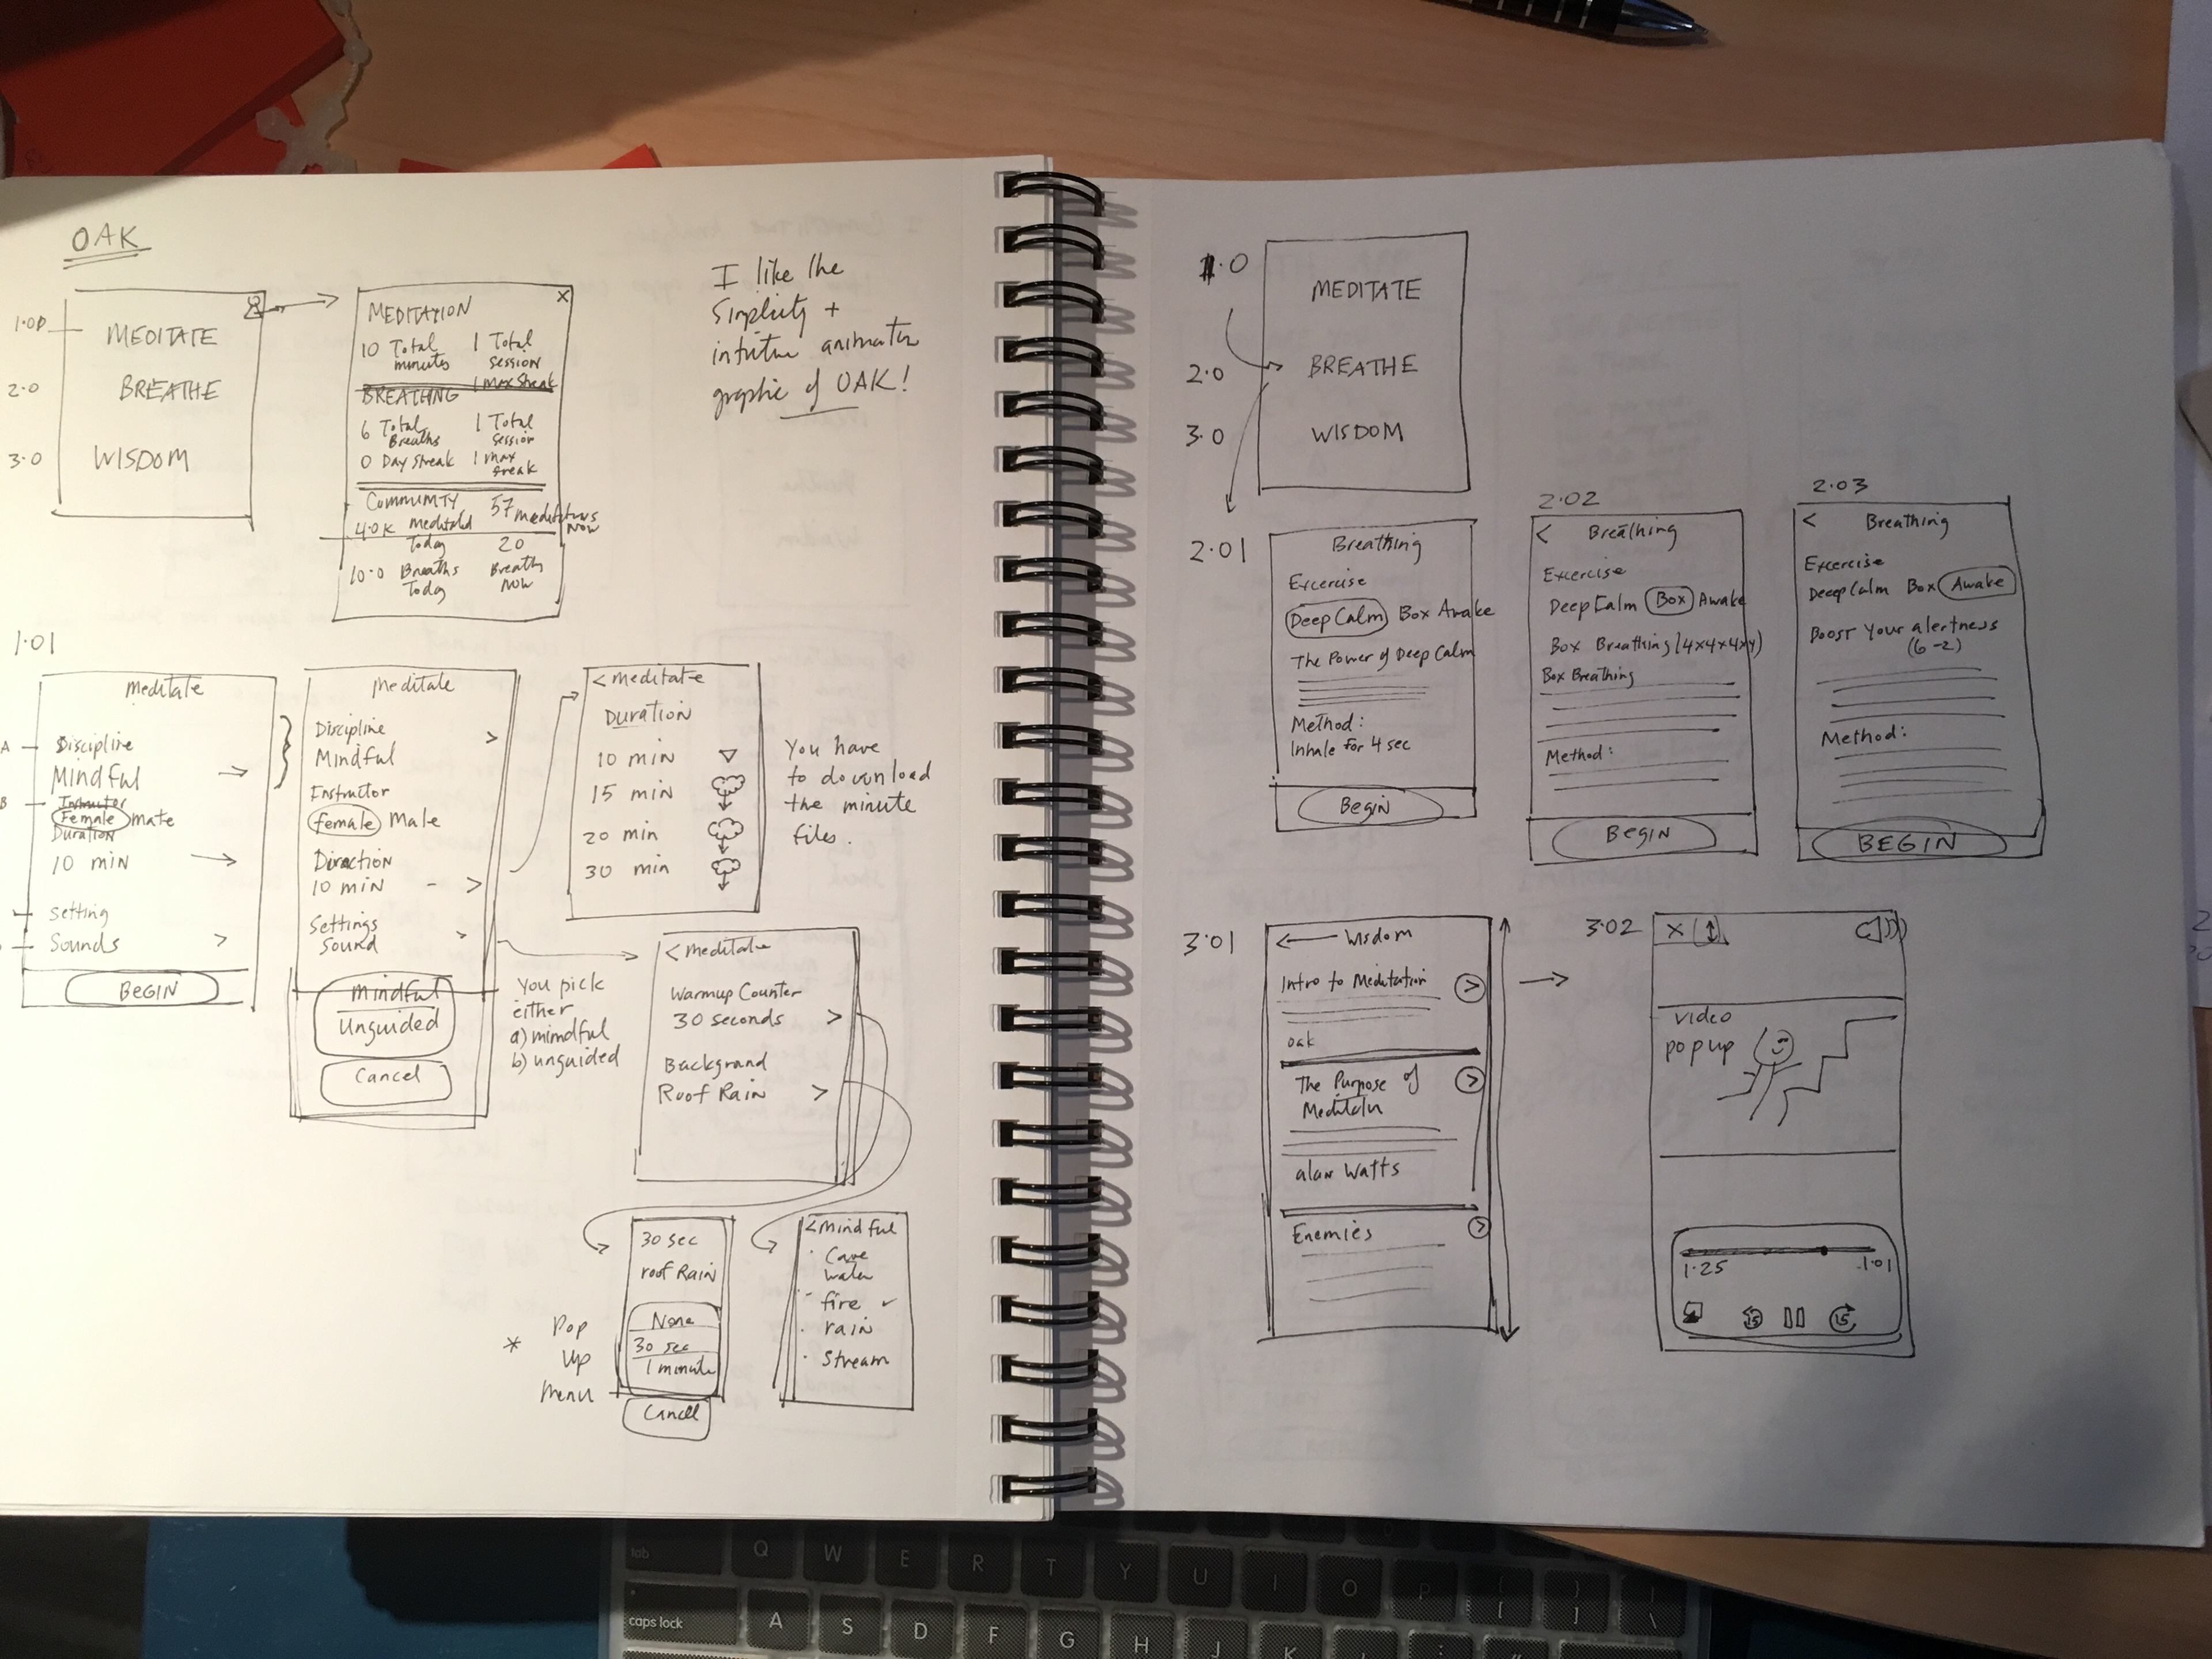 OAK
1.0
MEDITATE
2.0
BREATHE
3.0
WISDOM
X
MEDITATION
10 Total minutes
1 Total session
1 max streak
BREATHING
6 Total Breaths
1 Total session
0 Day streak
1 max
COMMUNITY
57 meditators now
4.0K meditated Today
20 Breaths now
10.0 Breaths Today
I like the
Simplicity +
graphic of OAK!
1.01
Meditate
A
Discipline
Mindful
B
Female
Male
Duration
10 min
Setting
Sounds
BEGIN
Meditate
Discipline
Mindful
Instructor
female Male
Direction
10 min
Settings
Sound
Mindful
Unguided
Cancel
You pick
either
a) mindful
b) unguided
< meditate
DURATION
10 min
15 min
20 min
30 min
You have
to download
the minute
files.
< meditate
Warmup Counter
30 seconds >
Background
Roof Rain >
* Pop
Up
menu
30 sec
roof Rain
None
30 sec
1 minute
Cancel
< mindful
Cave
water
fire
rain
Stream
1.0
MEDITATE
2.0
BREATHE
3.0
WISDOM
2.01
Breathing
Excercise
Deep Calm Box Awake
The Power of Deep Calm
Method:
Inhale for 4 sec
Begin
2.02
< Breathing
Excercise
Deep Calm Box Awake
Box Breathing (4x4x4x4)
Box Breathing
Method:
BEGIN
2.03
< Breathing
Excercise
Deep Calm Box Awake
Boost Your alertness
(6-2)
Method:
BEGIN
3.01
Wisdom
Intro to Meditation >
oak
The Purpose of >
alan Watts
Enemies >
3.02
X
video
pop up
1.25
1.01
15
15
tab
Q W E R T Y U I O P
caps lock
A S D F G H J K